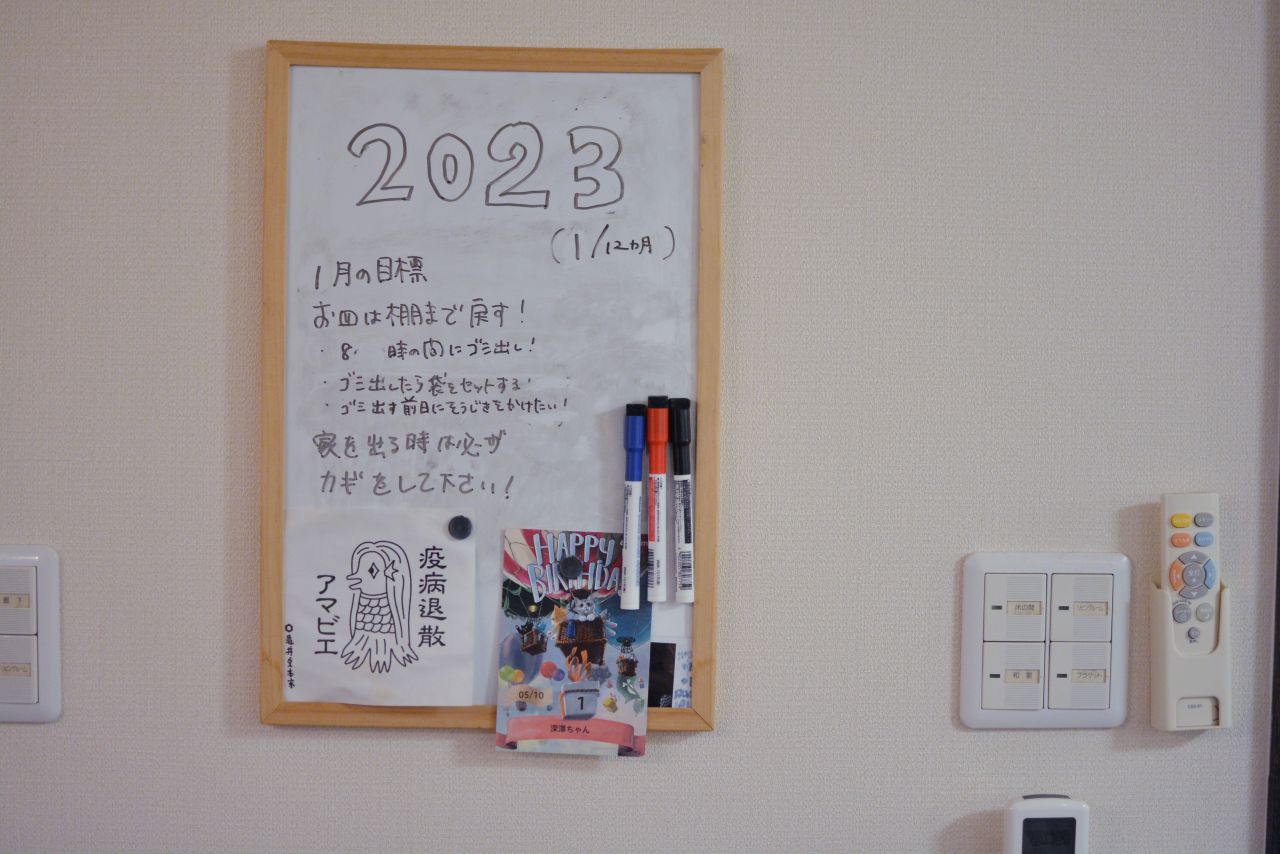 2023
(1/12ヵ月)
1月の目標
お皿は棚まで戻す!
・8. 時の間にゴミ出し!
・ゴミ出したら袋をセットする!
・ゴミ出す前日にそうじきをかけたい!
家を出る時は必ず
カギをして下さい!
疫病退散
アマビエ
亀井堂本家
HAPPY
BIRTHDA
05/10
1
深澤ちゃん
床の間
リビングルーム
和室
ブラケット
リビングルーム